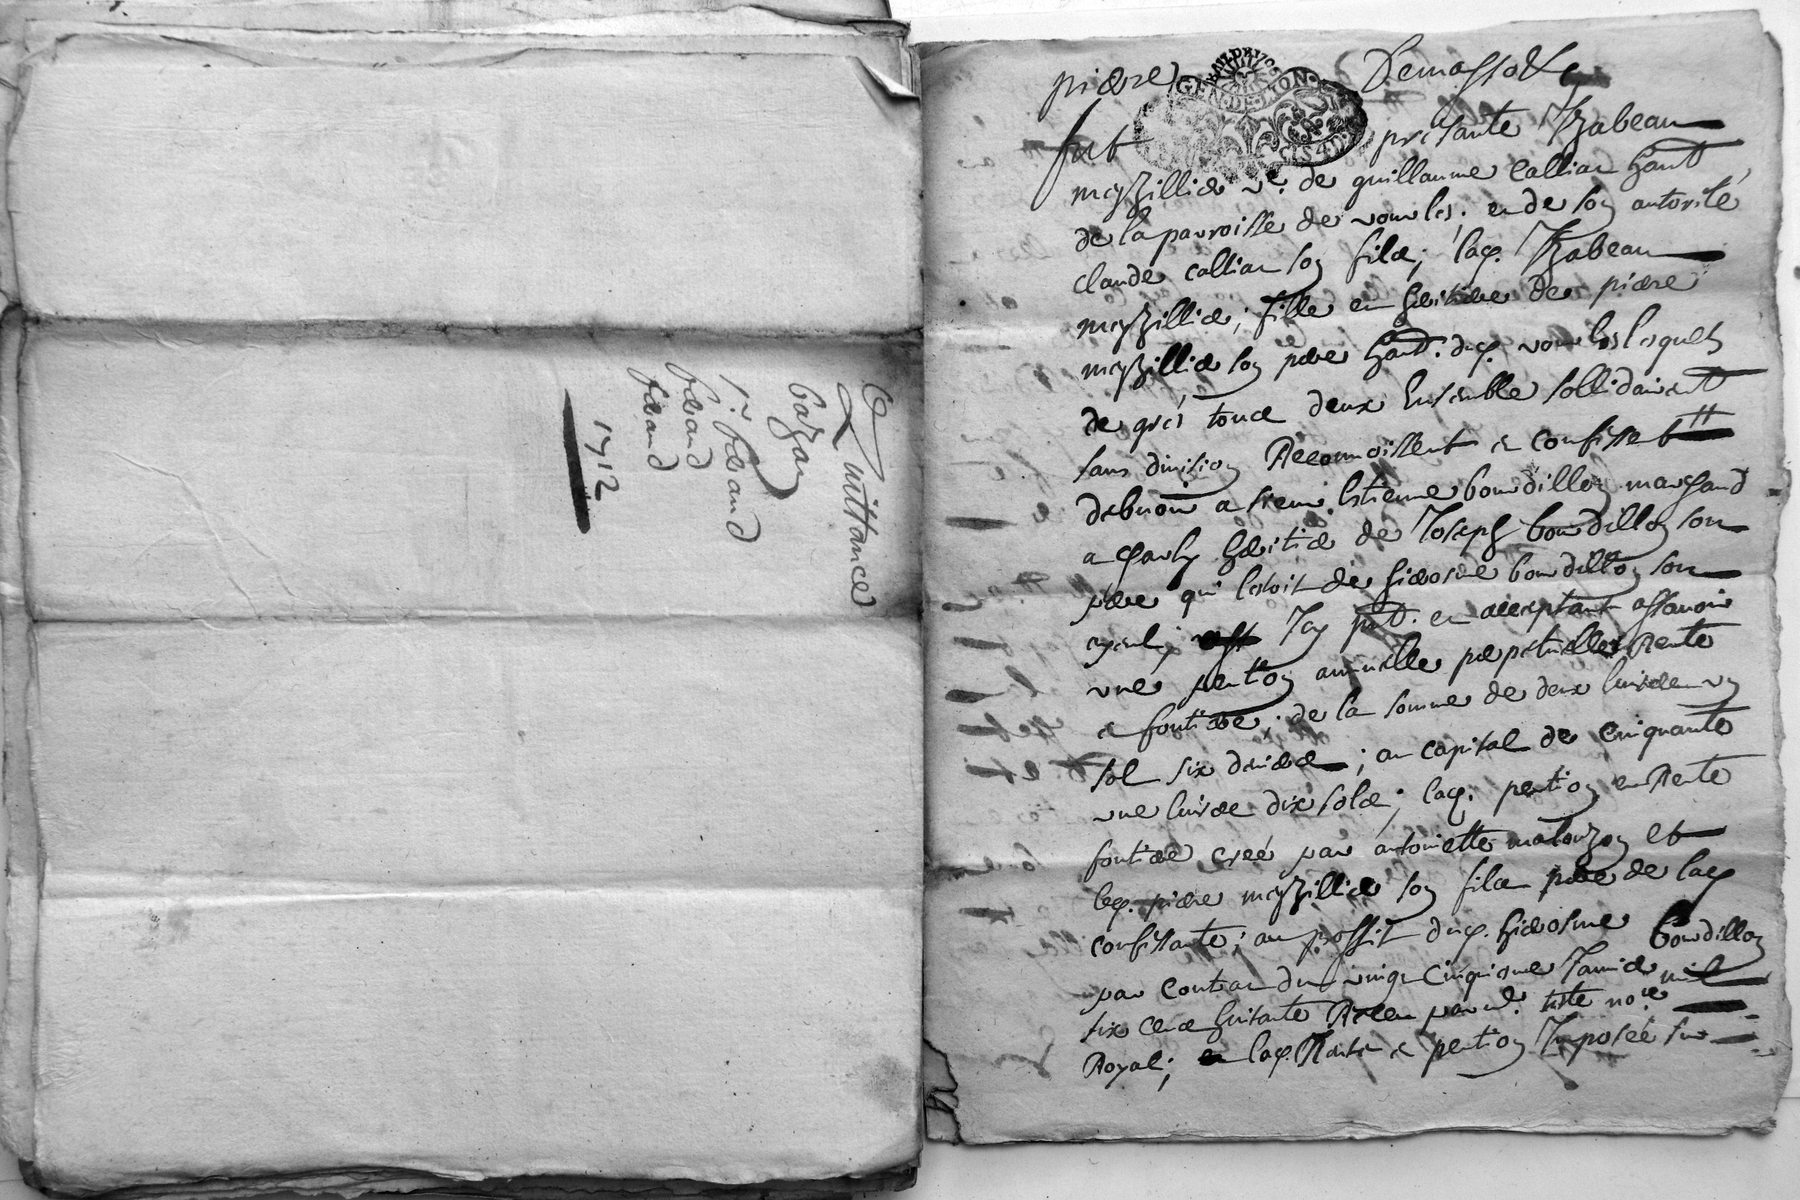 Quittance
bazan
feraud
feraud
1712
piere Demasso &c
GEN·DE·LION
fut presante Yzabeau
meyzillier ve. de guillaume Callian habt
de la parroisse de vourles; en de son autorité
claude callian son fils; lad. Yzabeau
meyzillier; fille en heritiere de piere
meyzillier son pere habt. dud. vourles lesquels
de gres tous deux Ensemble sollidairemt
sans division Reconnoissent et confessett
debvoir a sieur Estienne bourdillon marchand
a charly heritier de Joseph bourdillon son
pere qui lestoit de hierosme bourdillon son
ayeul; Icy pnt. en acceptant assavoir
une pention annuelle perpetuelle Rente
et fontiere; de la somme de deux livres un
sol six deniers; au capital de Cinquante
une livres dix sols; lad. pention en Rente
fontiere creé par antoinette matonzon et
led. piere meyzillier son fils pere de lad
confessante; au proffit dud. hierosme bourdillon
par Contrat du vingt Cinquieme Janvier mil
six cens huitante Receu par me. teste nore
Royal; lad. Rente et pention Imposeé sur